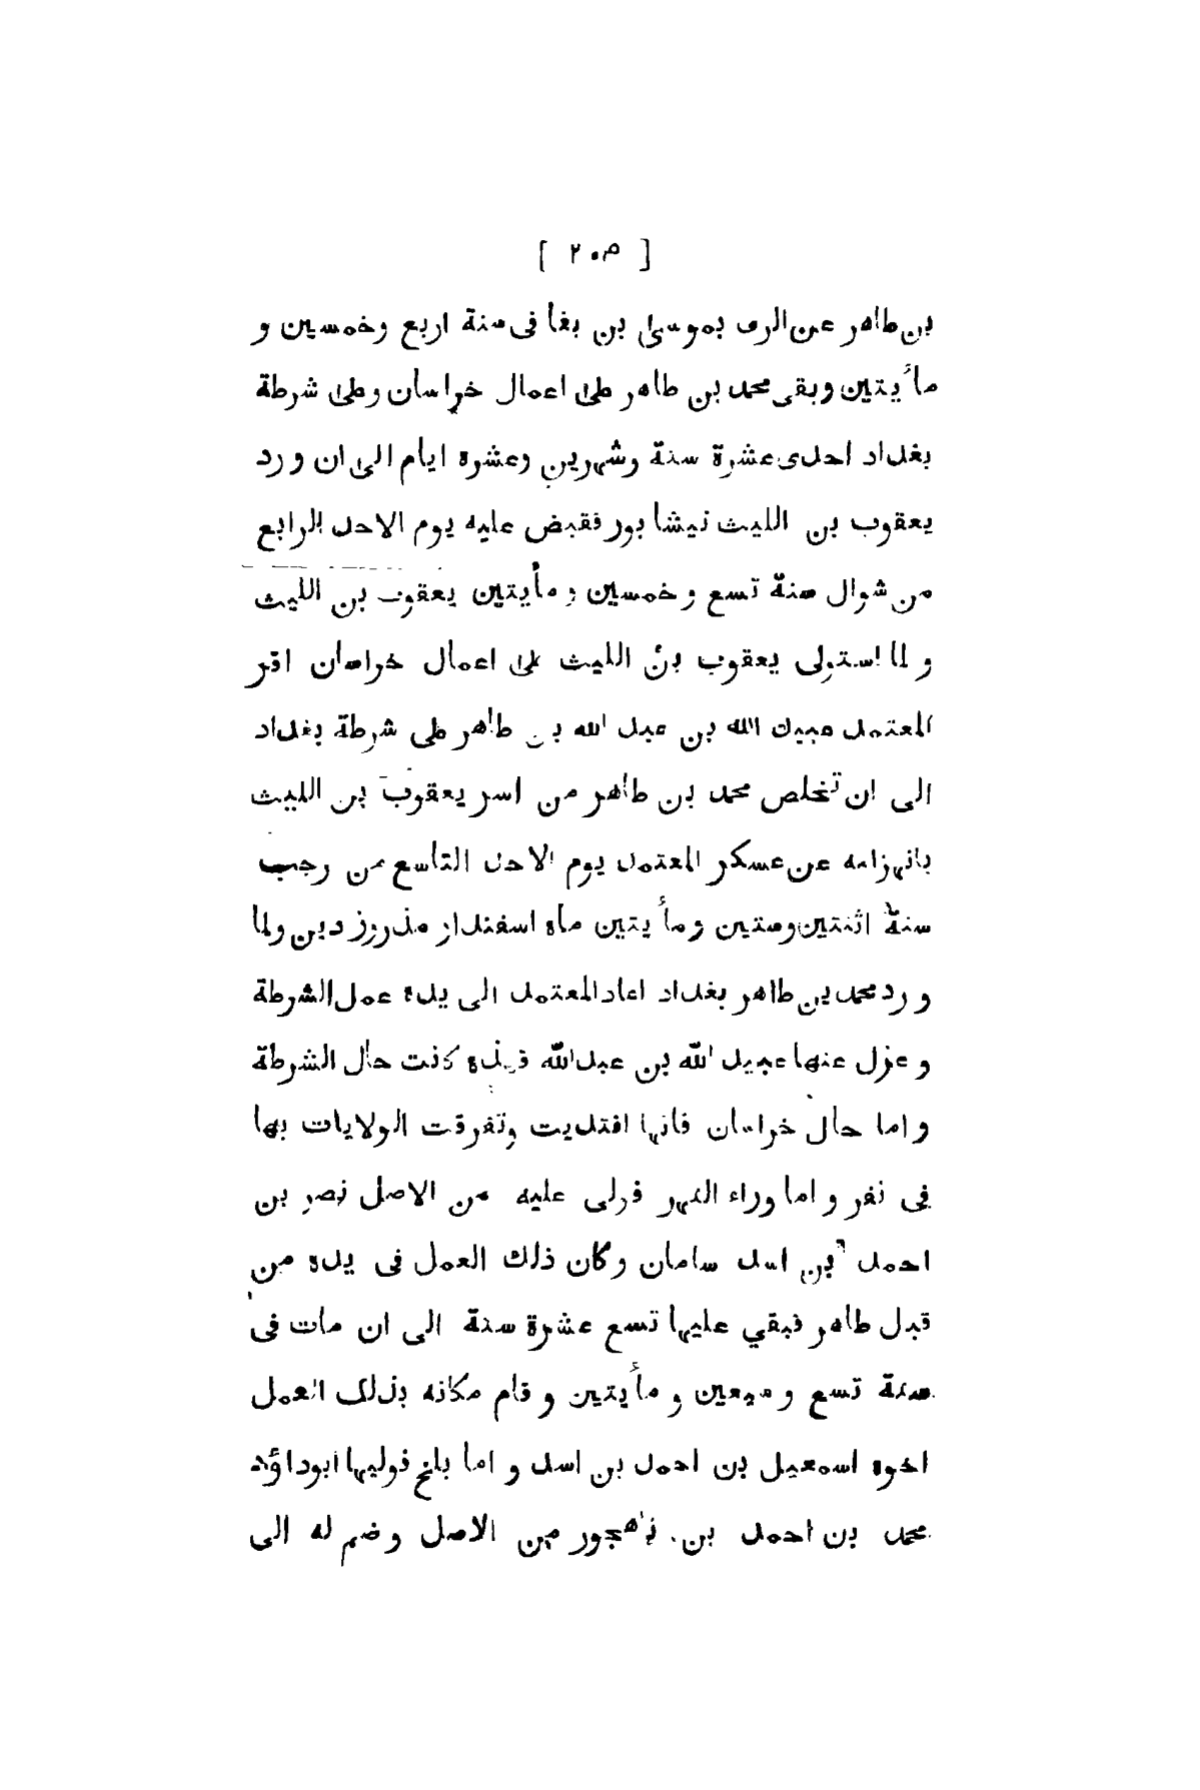 [ ٢٠٥ ]
بن طاهر عن الرى بموسى بن بغا فى سنة اربع وخمسين و
مأيتين وبقى محمد بن طاهر على اعمال خراسان وعلى شرطة
بغداد احدى عشرة سنة وشهرين وعشره ايام الى ان ورد
يعقوب بن الليث نيشابور فقبض عليه يوم الاحد الرابع
من شوال سنة تسع وخمسين ومأيتين يعقوب بن الليث
ولما استولى يعقوب بن الليث على اعمال خراسان اقر
المعتمد عبيد الله بن عبد الله بن طاهر على شرطة بغداد
الى ان تخلص محمد بن طاهر من اسر يعقوب بن الليث
بانهزامه عن عسكر المعتمد يوم الاحد التاسع من رجب
سنة اثنتين وستين ومأيتين ماه اسفندار مذروز دبين ولما
ورد محمد بن طاهر بغداد اعاد المعتمد الى يده عمل الشرطة
وعزل عنها عبيد الله بن عبد الله فهذه كانت حال الشرطة
واما حال خراسان فانها افتديت وتفرقت الولايات بها
فى نفر واما وراء النهر فولى عليه من الاصل نصر بن
احمد بن اسد سامان وكان ذلك العمل فى يده من
قبل طاهر فبقي عليها تسع عشرة سنة الى ان مات فى
سنة تسع وسبعين ومأيتين وقام مكانه بذلك العمل
اخوه اسمعيل بن احمد بن اسد واما بلخ فوليها ابوداؤد
محمد بن احمد بن من الاصل وضم له الى